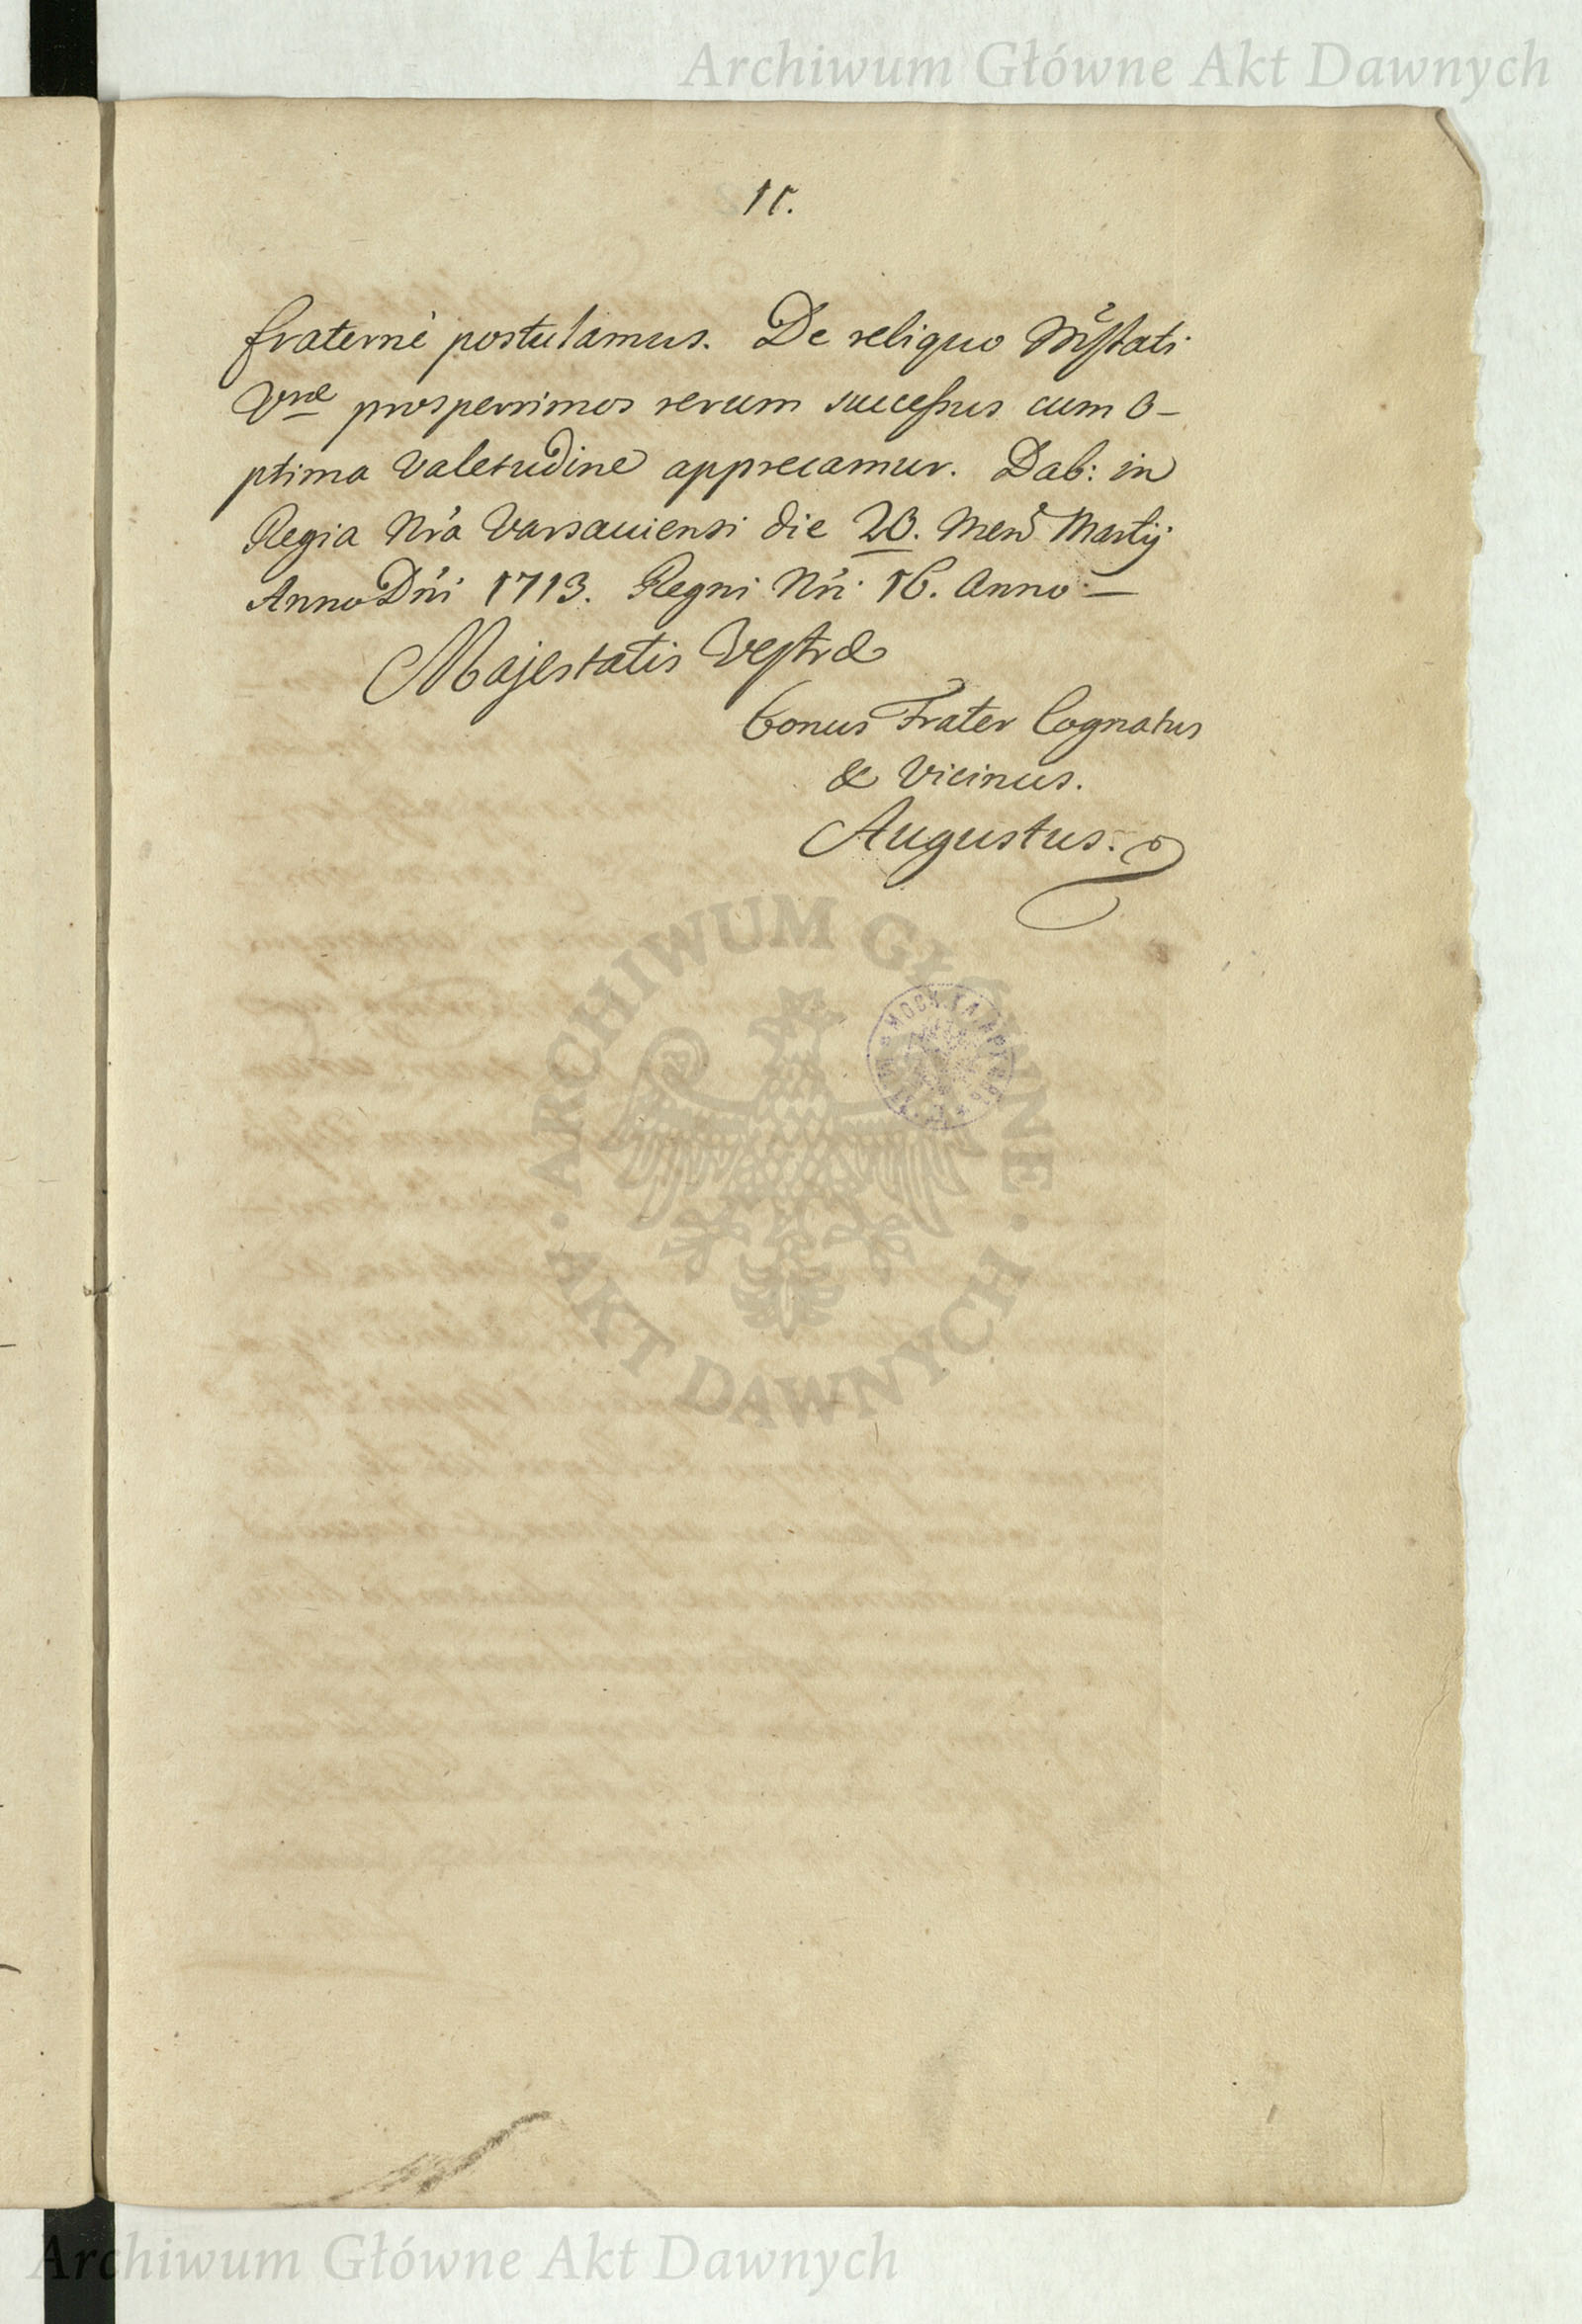 Archiwum Główne Akt Dawnych
11.
fraterné postulamus. De reliquo Mẽstati
Vræ prosperrimos rerum successus cum o-
ptima Valetudine apprecamur. Dab: in
Regia Nr̃a Varsauiensi die 20. Mens̃ Martij
Anno Dñi 1713. Regni Nr̃i 16. Anno —
Majestatis Vestræ
bonus Frater Cognatus
& Vicinus.
Augustus.
ARCHIWUM GŁÓWNE
AKT DAWNYCH
Archiwum Główne Akt Dawnych